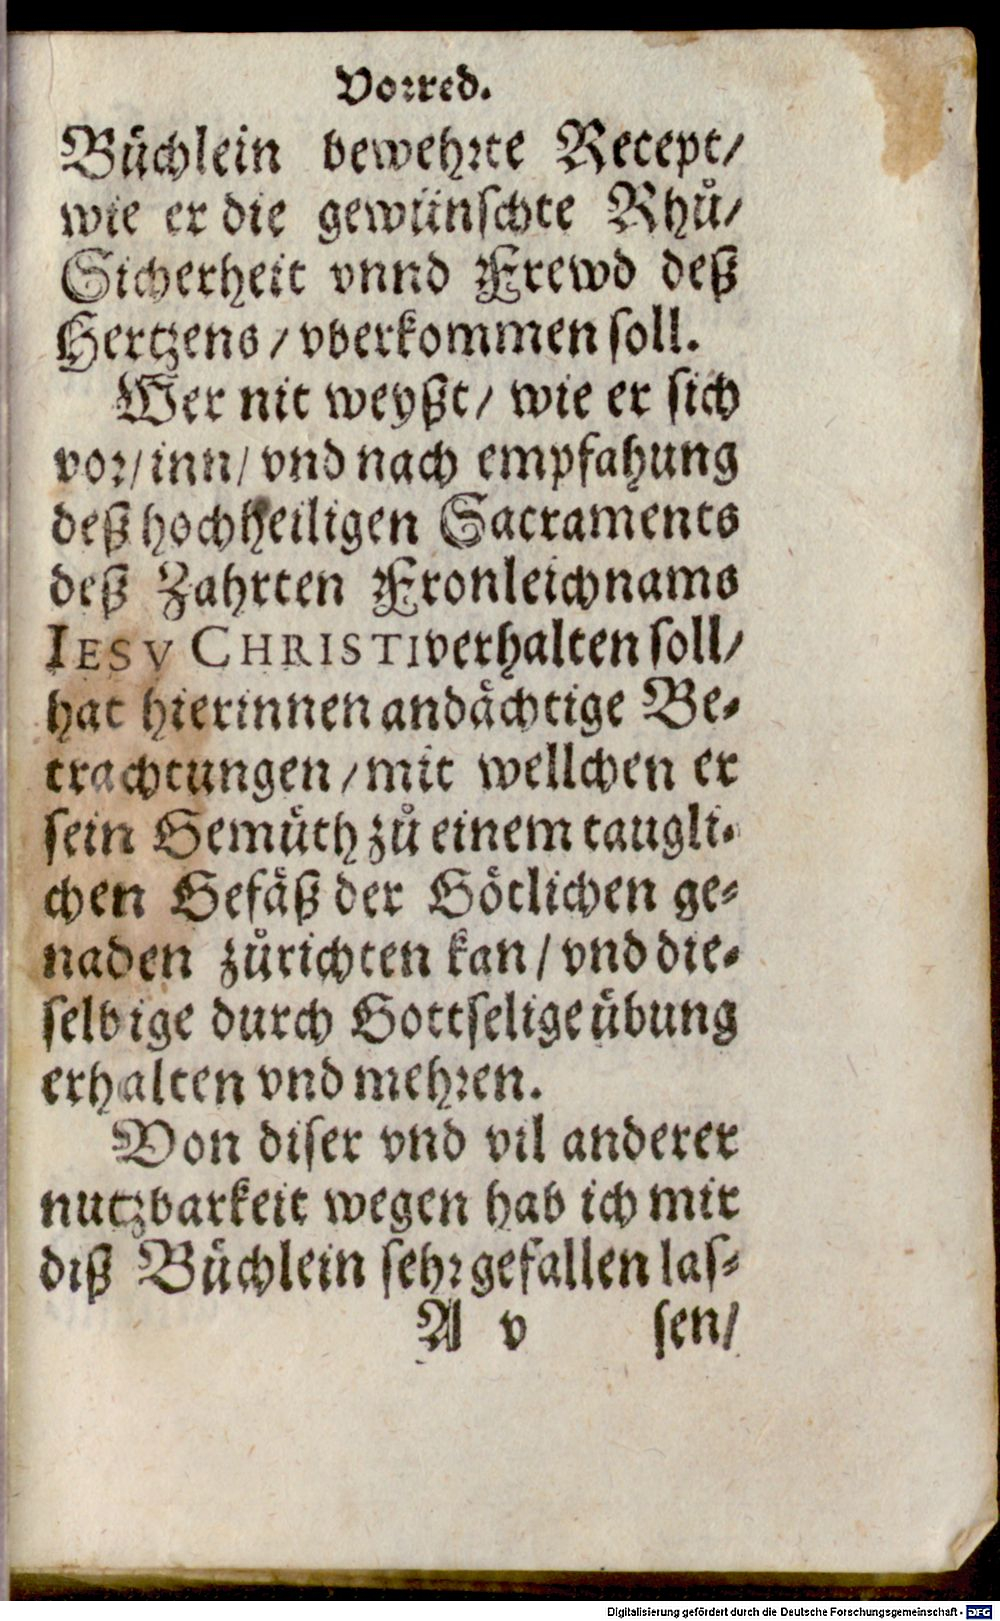 Vorred.
Bůchlein bewehrte Recept/
wie er die gewünschte Rhů/
Sicherheit vnnd Frewd deß
Hertzens / vberkommen soll.
Wer nit weyßt / wie er sich
vor / inn / vnd nach empfahung
deß hochheiligen Sacraments
deß Zahrten Fronleichnams
IESV CHRISTI verhalten soll /
hat hierinnen andaͤchtige Be-
trachtungen / mit wellchen er
sein Gemuͤth zů einem taugli-
chen Gefaͤß der Goͤtlichen ge-
naden zůrichten kan / vnd die-
selbige durch Gottselige uͤbung
erhalten vnd mehren.
Von diser vnd vil anderer
nutzbarkeit wegen hab ich mir
diß Buͤchlein sehr gefallen las-
A v sen/
Digitalisierung gefördert durch die Deutsche Forschungsgemeinschaft - DFG